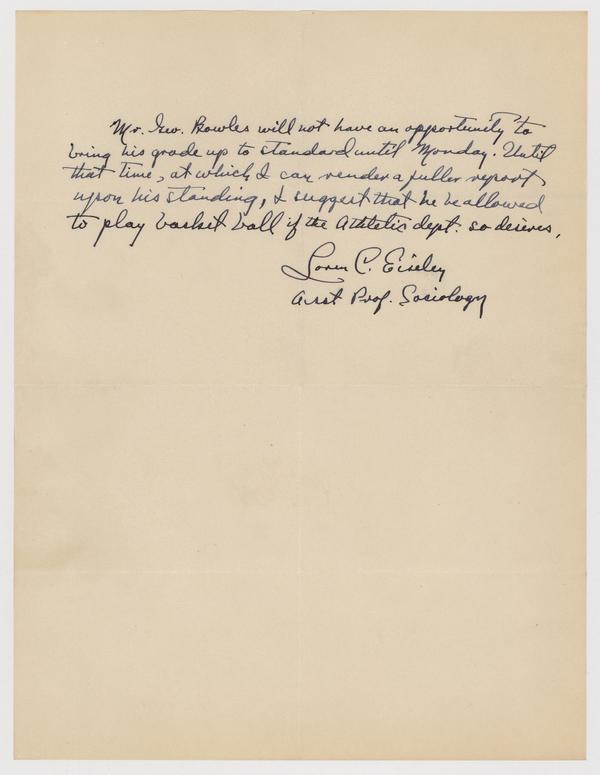 Mr. Geo. Bowles will not have an opportunity to
bring his grade up to standard until Monday. Until
that time, at which I can render a fuller report
upon his standing, I suggest that he be allowed
to play basket ball if the Athletic dept. so desires.
Loren C. Eiseley
Asst Prof. Sociology